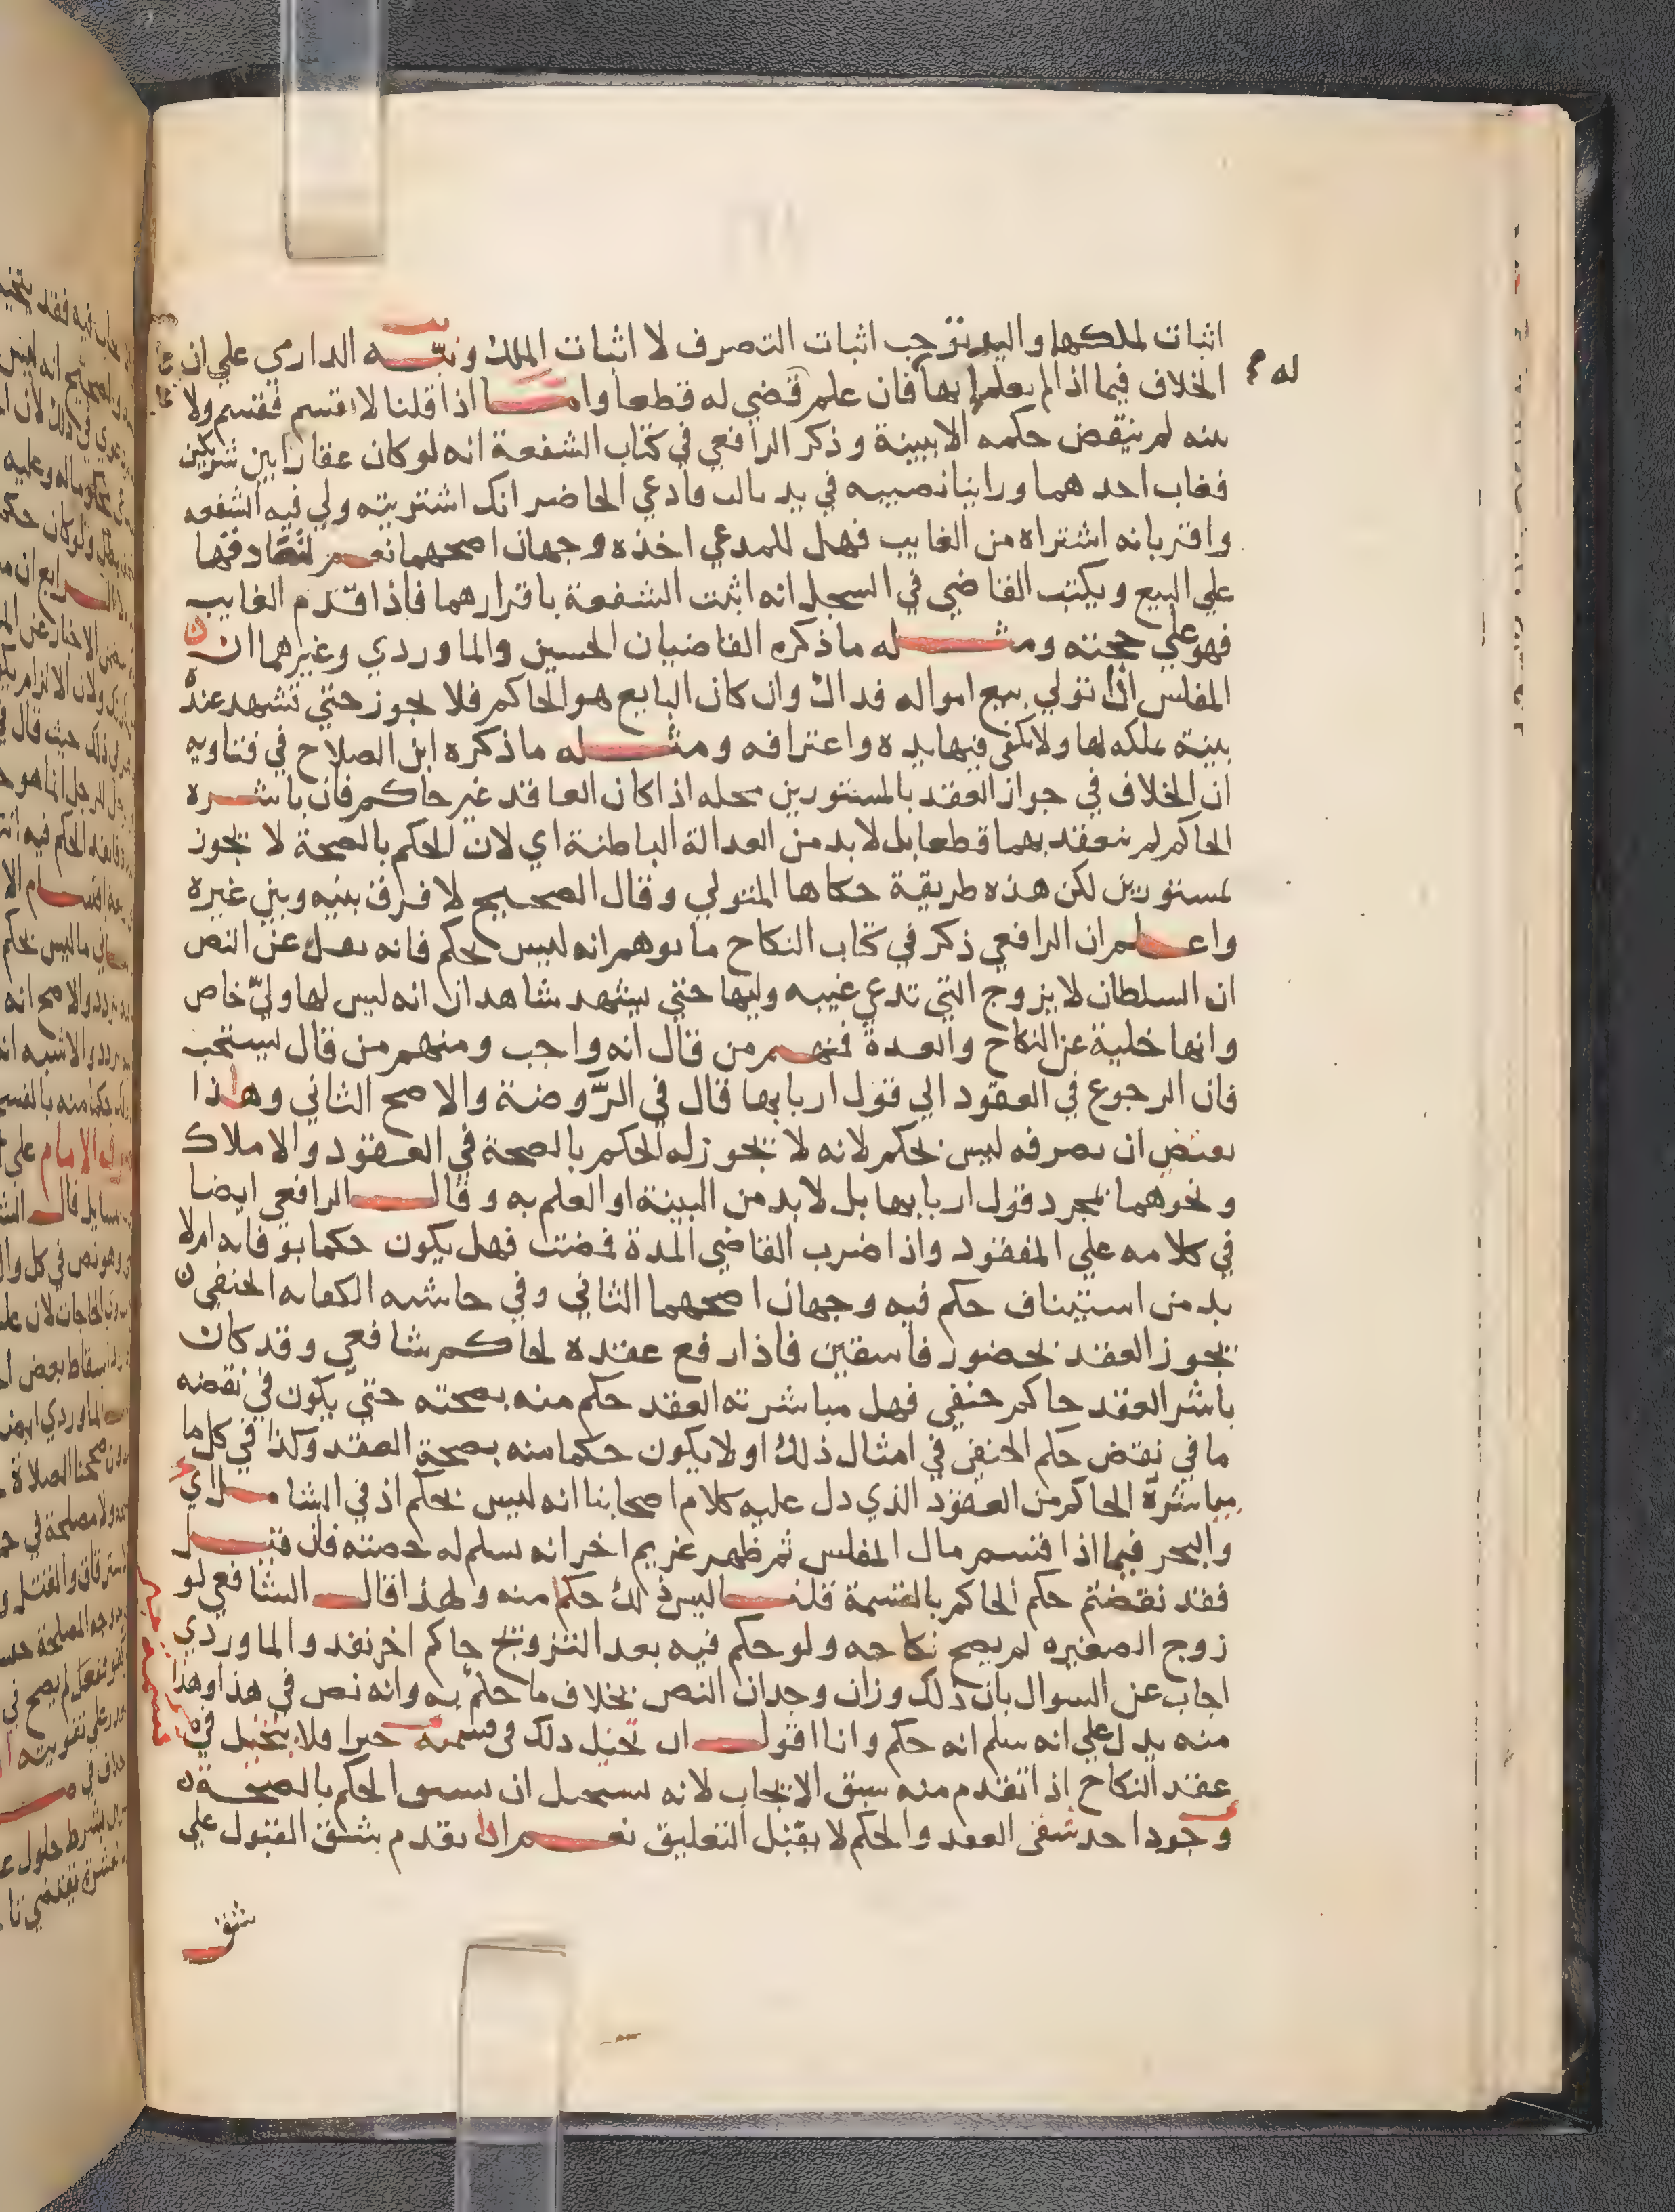 اثبات لملكها واليد توجب اثبات التصرف لا اثبات الملك ونبه الدارمي علي ان
الخلاف فيما اذا لم يعلم بها فان علم قضي له قطعا واما اذا قلنا لا يقسم فقسم ولا
له
بينه لم ينقض حكمه الا ببينة وذكر الرافعي في كتاب الشفعة انه لو كان عقارا بين شريكين
فغاب احدهما وراينا نصيبه في يد ثالث فادعي الحاضر انك اشتريته ولي فيه الشفعه
واقر بانه اشتراه من الغايب فهل للمدعي اخذه وجهان اصحهما نعم لتصادقهما
علي البيع ويكتب القاضي في السجل انه اثبت الشفعة باقرارهما فاذا قدم الغايب
فهو علي حجته ومثله ما ذكره القاضيان الحسين والماوردي وغيرهما ان
المفلس ان تولي بيع امواله فذاك وان كان البايع هو الحاكم فلا يجوز حتي تشهد عنده
بينة بملكه لها ولا يكفي فيها يده واعترافه ومثله ما ذكره ابن الصلاح في فتاويه
ان الخلاف في جواز العقد بالمستورين محله اذا كان العاقد غير حاكم فان باشره
الحاكم لم ينعقد بهما قطعا بل لا بد من العدالة الباطنة اي لان الحكم بالصحة لا يجوز
لمستورين لكن هذه طريقة حكاها المتولي وقال الصحيح لا فرق بينه وبين غيره
واعلم ان الرافعي ذكر في كتاب النكاح ما يوهم انه ليس بحكم فانه نقل عن النص
ان السلطان لا يزوج التي تدعي غيبه وليها حتي يشهد شاهدان انه ليس لها ولي خاص
وانها خلية عن النكاح والعدة فمنهم من قال انه واجب ومنهم من قال يستحب
فان الرجوع في العقود الي قول اربابها قال في الروضة والاصح الثاني وهذا
يقتضي ان تصرفه ليس بحكم لانه لا يجوز له الحكم بالصحة في العقود والاملاك
ونحوهما بمجرد قول اربابها بل لا بد من البينة او العلم به وقال الرافعي ايضا
في كلامه علي المفقود واذا ضرب القاضي المدة فمضت فهل يكون حكما بوفاته ام لا
بد من استيناف حكم فيه وجهان اصحهما الثاني وفي حاشيه الكفايه الحنفي
يجوز العقد بحضور فاسقين فاذا رفع عقده لحاكم شافعي وقد كان
باشر العقد حاكم حنفي فهل مباشرته العقد حكم منه بصحته حتي يكون في نقضه
ما في نقض حكم الحنفي في امثال ذلك او لا يكون حكما منه بصحة العقد وكذا في كل ما
مباشرة الحاكم من العقود الذي دل عليه كلام اصحابنا انه ليس بحكم اذ في الشامل اي
والبحر فيما اذا قسم مال المفلس ثم ظهر غريم اخر انه يسلم له حصته فان قيل
فقد نقضتم حكم الحاكم بالقسمة قلنا ليس ذلك حكم منه ولهذا قال الشافعي لو
زوج الصغيره لم يصح نكاحه ولو حكم فيه بعد التزويج حاكم اخر نفذ والماوردي
اجاب عن السوال بان ذلك وزان وجدان النص بخلاف ما حكم به وانه نص في هذا وهذا
منه يدل علي انه سلم انه حكم وانا اقول ان تخيل ذلك في قسمته خيرا فلا يتخيل في
عقد النكاح اذا تقدم منه سبق الايجاب لانه يستحيل ان يسبق الحكم بالصحة
وجود احد شقي العقد والحكم لا يقبل التعليق نعم ان تقدم بشق القبول علي
شق